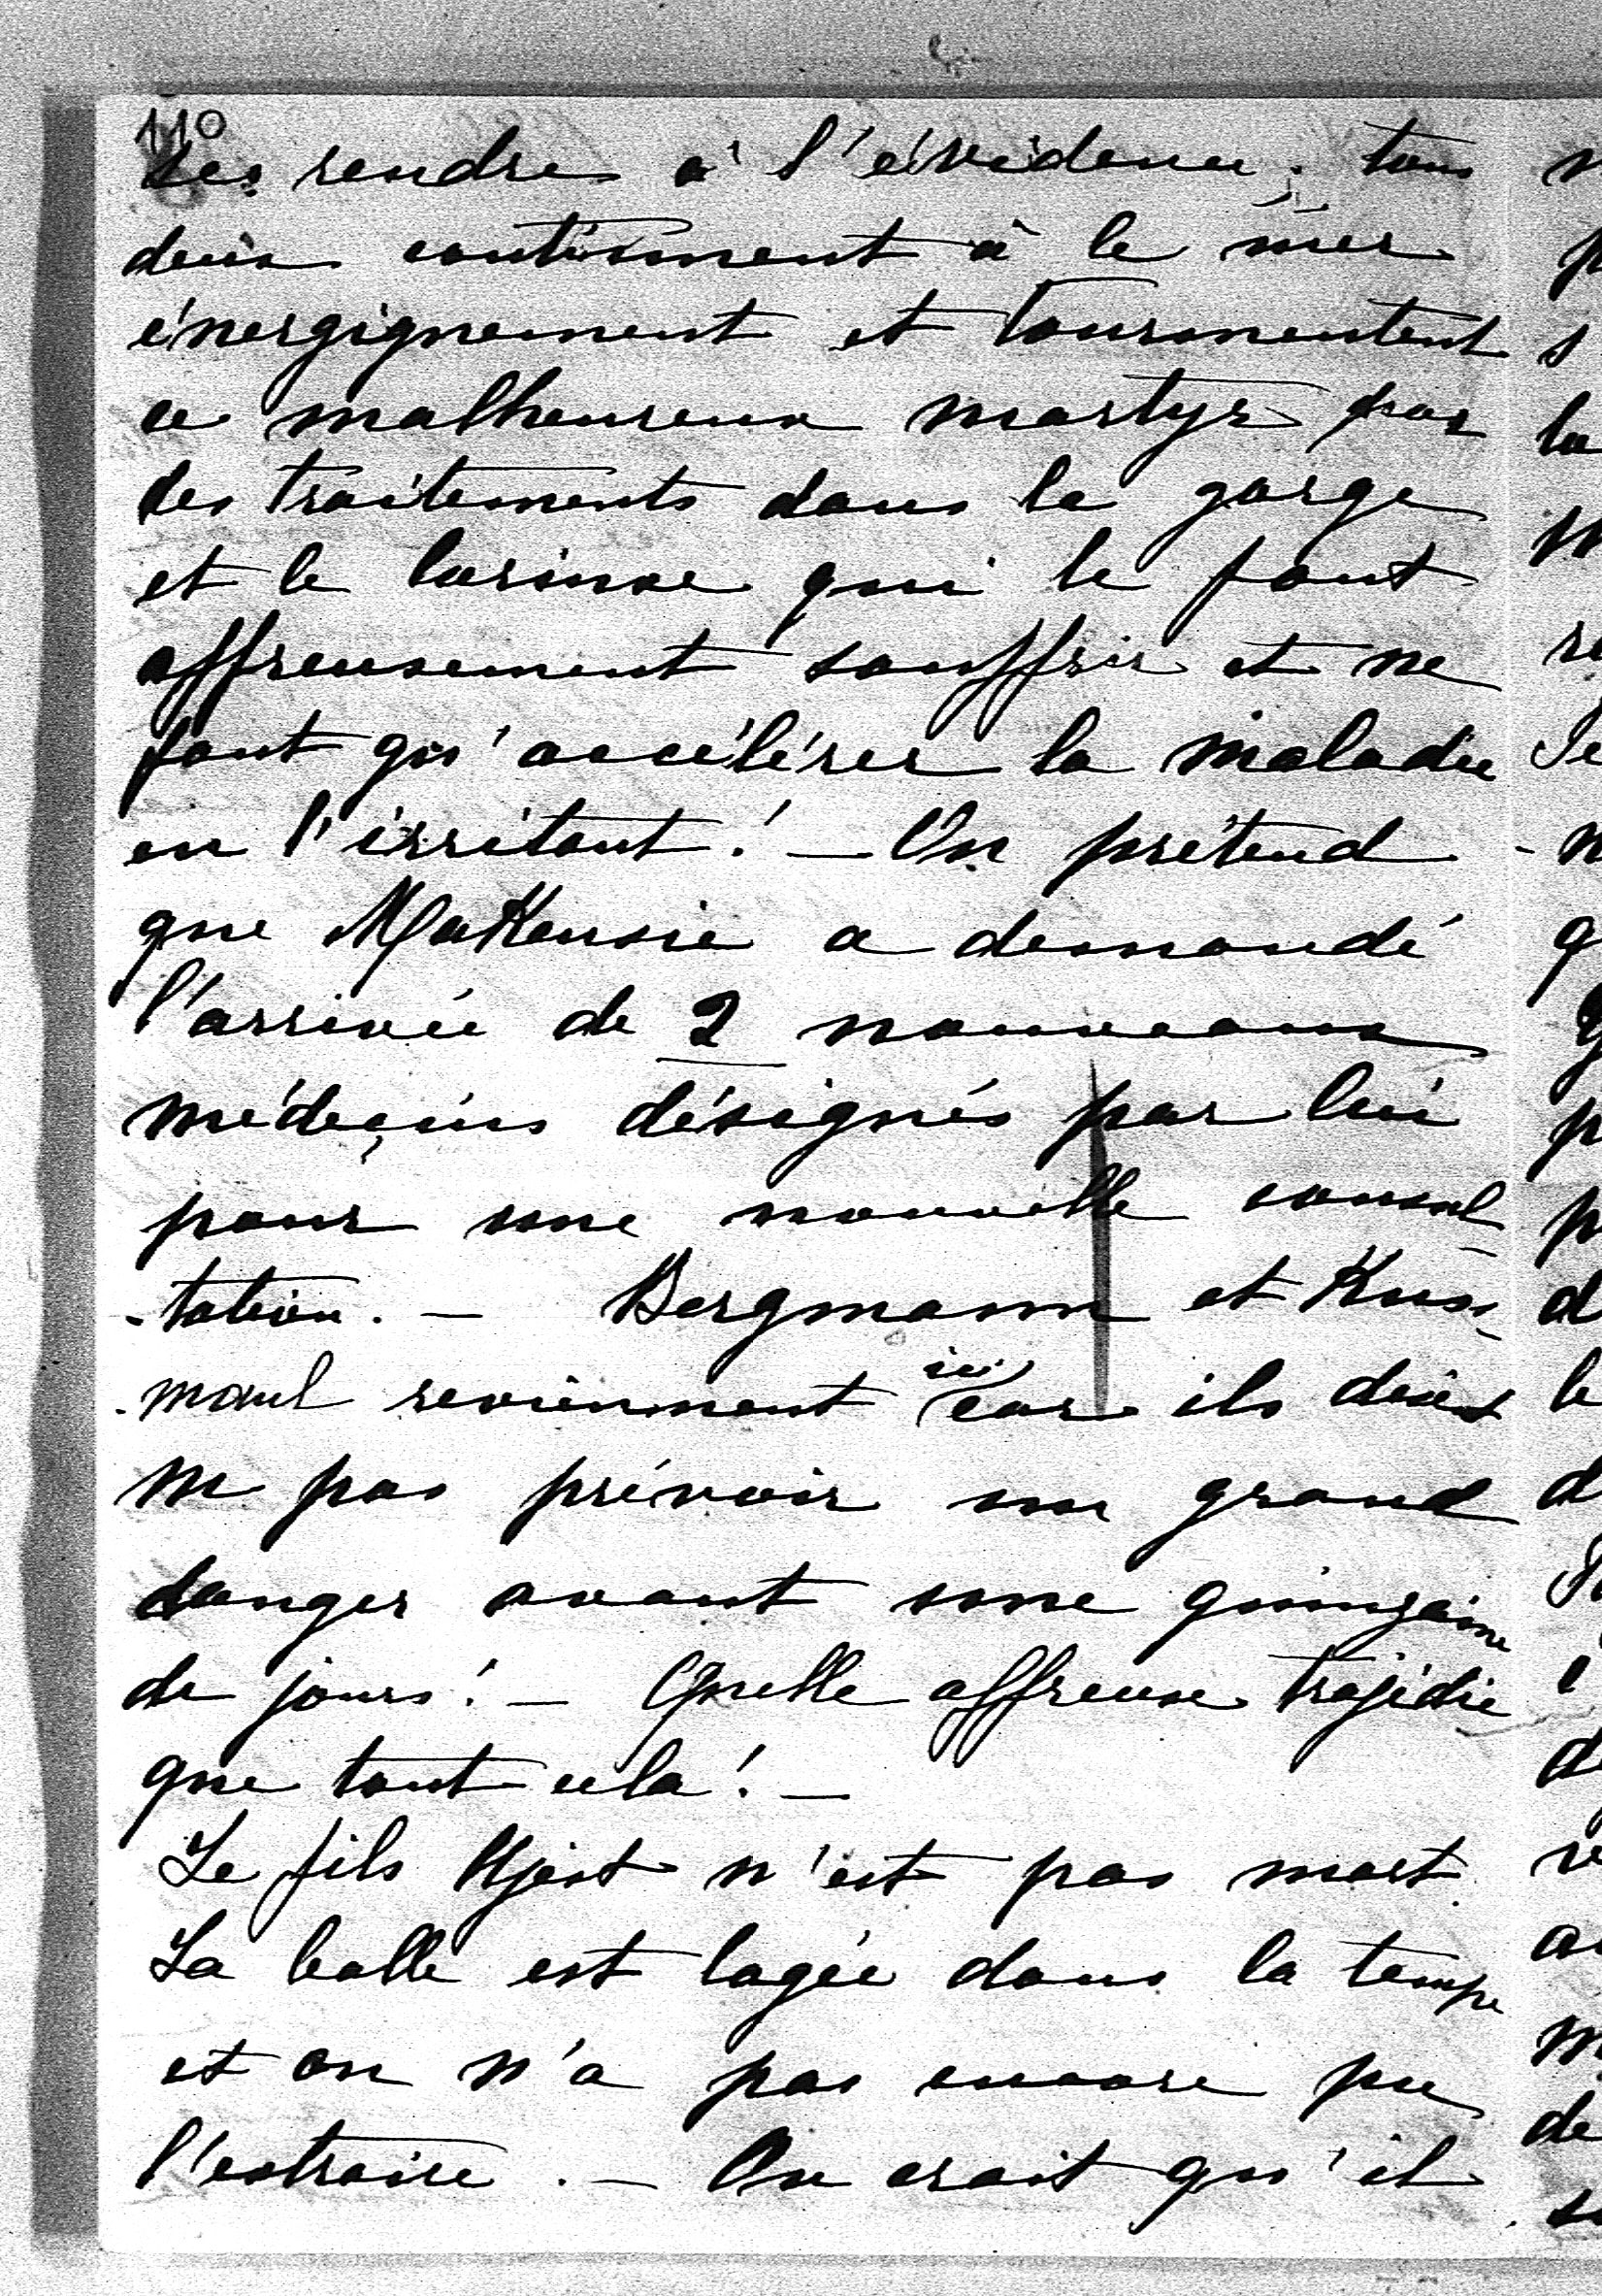 110
ses rendre à l'évidence; tous
deux continuent à le nier
énergiquement et tourmentent
ce malheureux martyr par
des traitements dans la gorge
et le larinxe qui le font
affreusement souffrir et ne
font qu'accélérer la maladie
en l'irritant! — On prétend
que MaKensie a demandé
l'arrivée de 2 nouveaux
médeçins désignés par lui
pour une nouvelle consul
-tation. — Bergmann et Kuss-
-maul reviennent ici car ils disent
ne pas prévoir un grand
danger avant une quinzaine
de jours! — Quelle affreuse trajédie
que tout cela! —
Le fils n'est pas mort
La balle est logée dans la tempe
et on n'a pas encore pu
l'extraire. — On croit qu'il